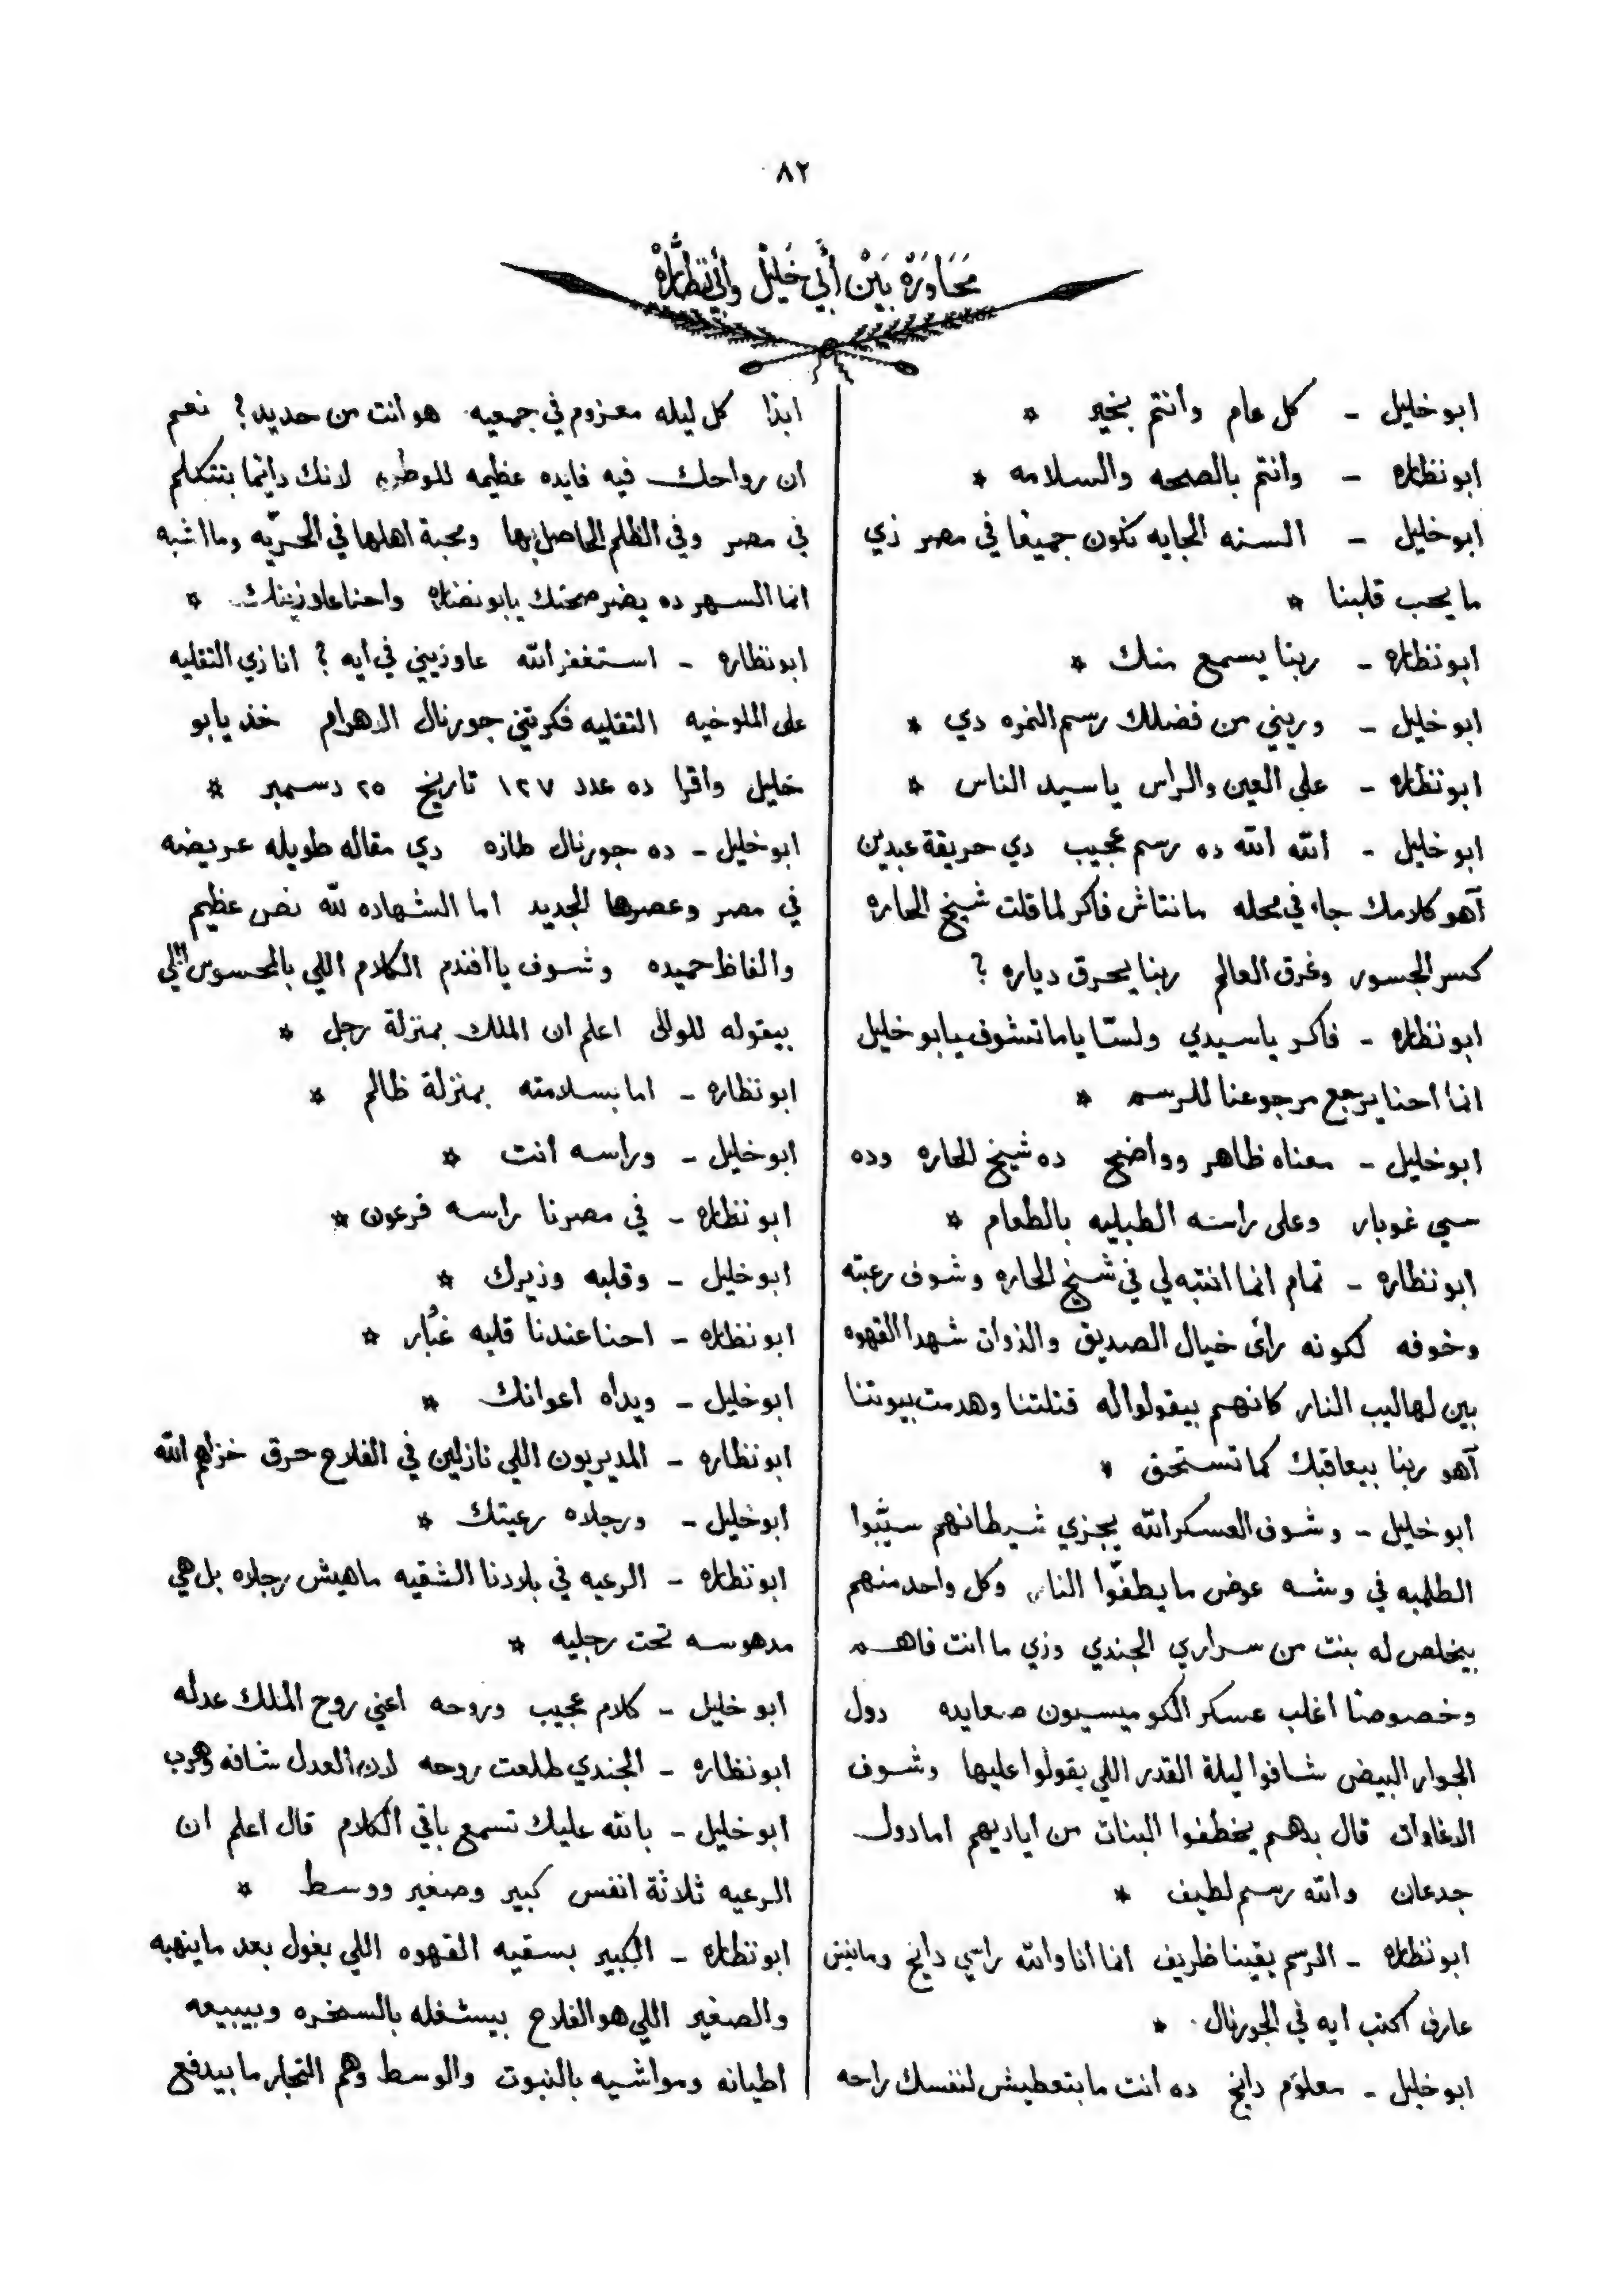 ٨٢
مَحَاوَرَة بَيْنَ أَبِي خَلِيْل وَأَبِي نَظَّارَهْ
ابو خليل - كل عام وانتم بخير *
ابو نظاره - وانتم بالصحه والسلامه *
ابو خليل - السنه الجايه نكون جميعًا في مصر زي
ما يحب قلبنا *
ابو نظاره - ربنا يسمع منك *
ابو خليل - وريني من فضلك رسم النمره دي *
ابو نظاره - على العين والراس يا سيد الناس *
ابو خليل - الله الله ده رسم عجيب دي حريقة عبدين
آهو كلامك جاء في محله مانتاش فاكر لما قلت شيخ الحاره
كسر الجسور وغرق العالم ربنا يحرق دياره ؟
ابو نظاره - فاكر يا سيدي ولسّا ياما تشوف يابو خليل
انما احنا يرجع مرجوعنا للرسم *
ابو خليل - معناه ظاهر وواضح ده شيخ الحاره وده
سي غوبار وعلى راسه الطبليه بالطعام *
ابو نظاره - تمام انما انتبه لي في شيخ الحاره وشوف رعبته
وخوفه لكونه رأى خيال الصديق والذوات شهدا القهوه
بين لهاليب النار كانهم بيقولوا له قتلتنا وهدمت بيوتنا
آهو ربنا بيعاقبك كما تستحق *
ابو خليل - وشوف العسكر الله يجزي شيطانهم سيّبوا
الطلمبه في وشه عوض ما يطفّوا النار وكل واحد منهم
بيخلص له بنت من سراري الجندي وزي ما انت فاهم
وخصوصًا اغلب عسكر الكوميسيون صعايده دول
الجوار البيض شافوا ليلة القدر اللي يقولوا عليها وشوف
الدغاوات قال بدهم يخطفوا البنات من اياديهم اما دول
جدعان والله رسم لطيف *
ابو نظاره - الرسم يقينا ظريف انما انا والله راسي دايخ ومانيش
عارف اكتب ايه في الجورنال *
ابو خليل - معلوم دايخ ده انت ما بتعطيش لنفسك راحه
ابدًا كل ليله معزوم في جمعيه هو انت من حديد ؟ نعم
ان رواحك فيه فايده عظيمه للوطن لانك دايمًا بتتكلم
في مصر وفي الظلم الحاصل بها ومحبة اهلها في الحرّيه وما اشبه
انما السهر ده يضر صحتك يابو نضاره واحنا عاوزينك *
ابو نظاره - استغفر الله عاوزيني في ايه ؟ انا زي التقليه
على الملوخيه التقليه فكرتني جورنال الاهرام خذ يابو
خليل واقرا ده عدد ١٢٧ تاريخ ٢٥ دسمبر *
ابو خليل - ده جورنال طازه دي مقاله طويله عريضه
في مصر وعصرها الجديد اما الشهاده لله نص عظيم
والفاظ حميده وشوف يا افندم الكلام اللي بالمحسوس اللي
بيقوله للوالى اعلم ان الملك بمنزلة رجل *
ابو نظاره - اما بسلامته بمنزلة ظالم *
ابو خليل - وراسه انت *
ابو نظاره - في مصرنا راسه فرعون *
ابو خليل - وقلبه وزيرك *
ابو نظاره - احنا عندنا قلبه غُبَار *
ابو خليل - ويداه اعوانك *
ابو نظاره - المديريون اللي نازلين في الفلاح حرق خزاهم الله
ابو خليل - ورجلاه رعيتك *
ابو نظاره - الرعيه في بلادنا الشقيه ماهيش رجلاه بل هي
مدهوسه تحت رجليه *
ابو خليل - كلام عجيب وروحه اعني روح الملك عدله
ابو نظاره - الجندي طلعت روحه لان العدل شافه وهرب
ابو خليل - بالله عليك تسمع باقي الكلام قال اعلم ان
الرعيه ثلاثة انفس كبير وصغير ووسط *
ابو نظاره - الكبير بسقيه القهوه اللي بغول بعد ما ينهبه
والصغير اللي هو الفلاح بيستغله بالسخره وبيبيعه
اطيانه ومواشيه بالنبوت والوسط وهم التجار ما بيدفع